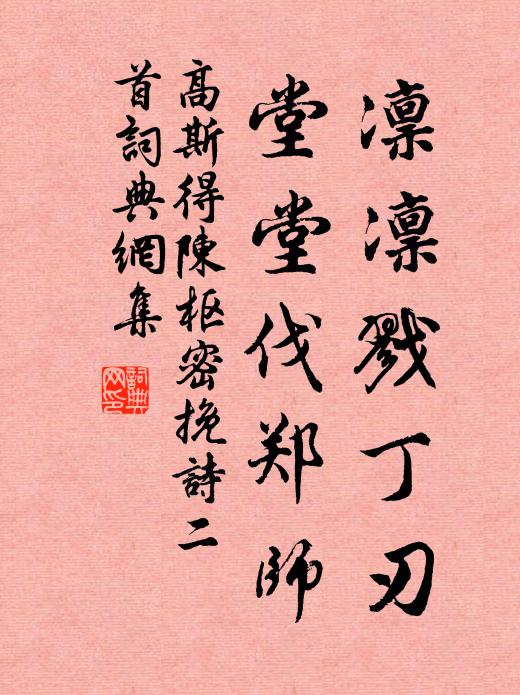 凛凛戮丁刃
堂堂伐郑師
高斯得陳枢密挽詩二
首詞典網集
詞典网印